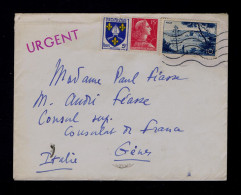 URGENT
Madame Paul Fiasse
M. André Fiasse
Consul sup.
Consulat de France
Gênes
Italie